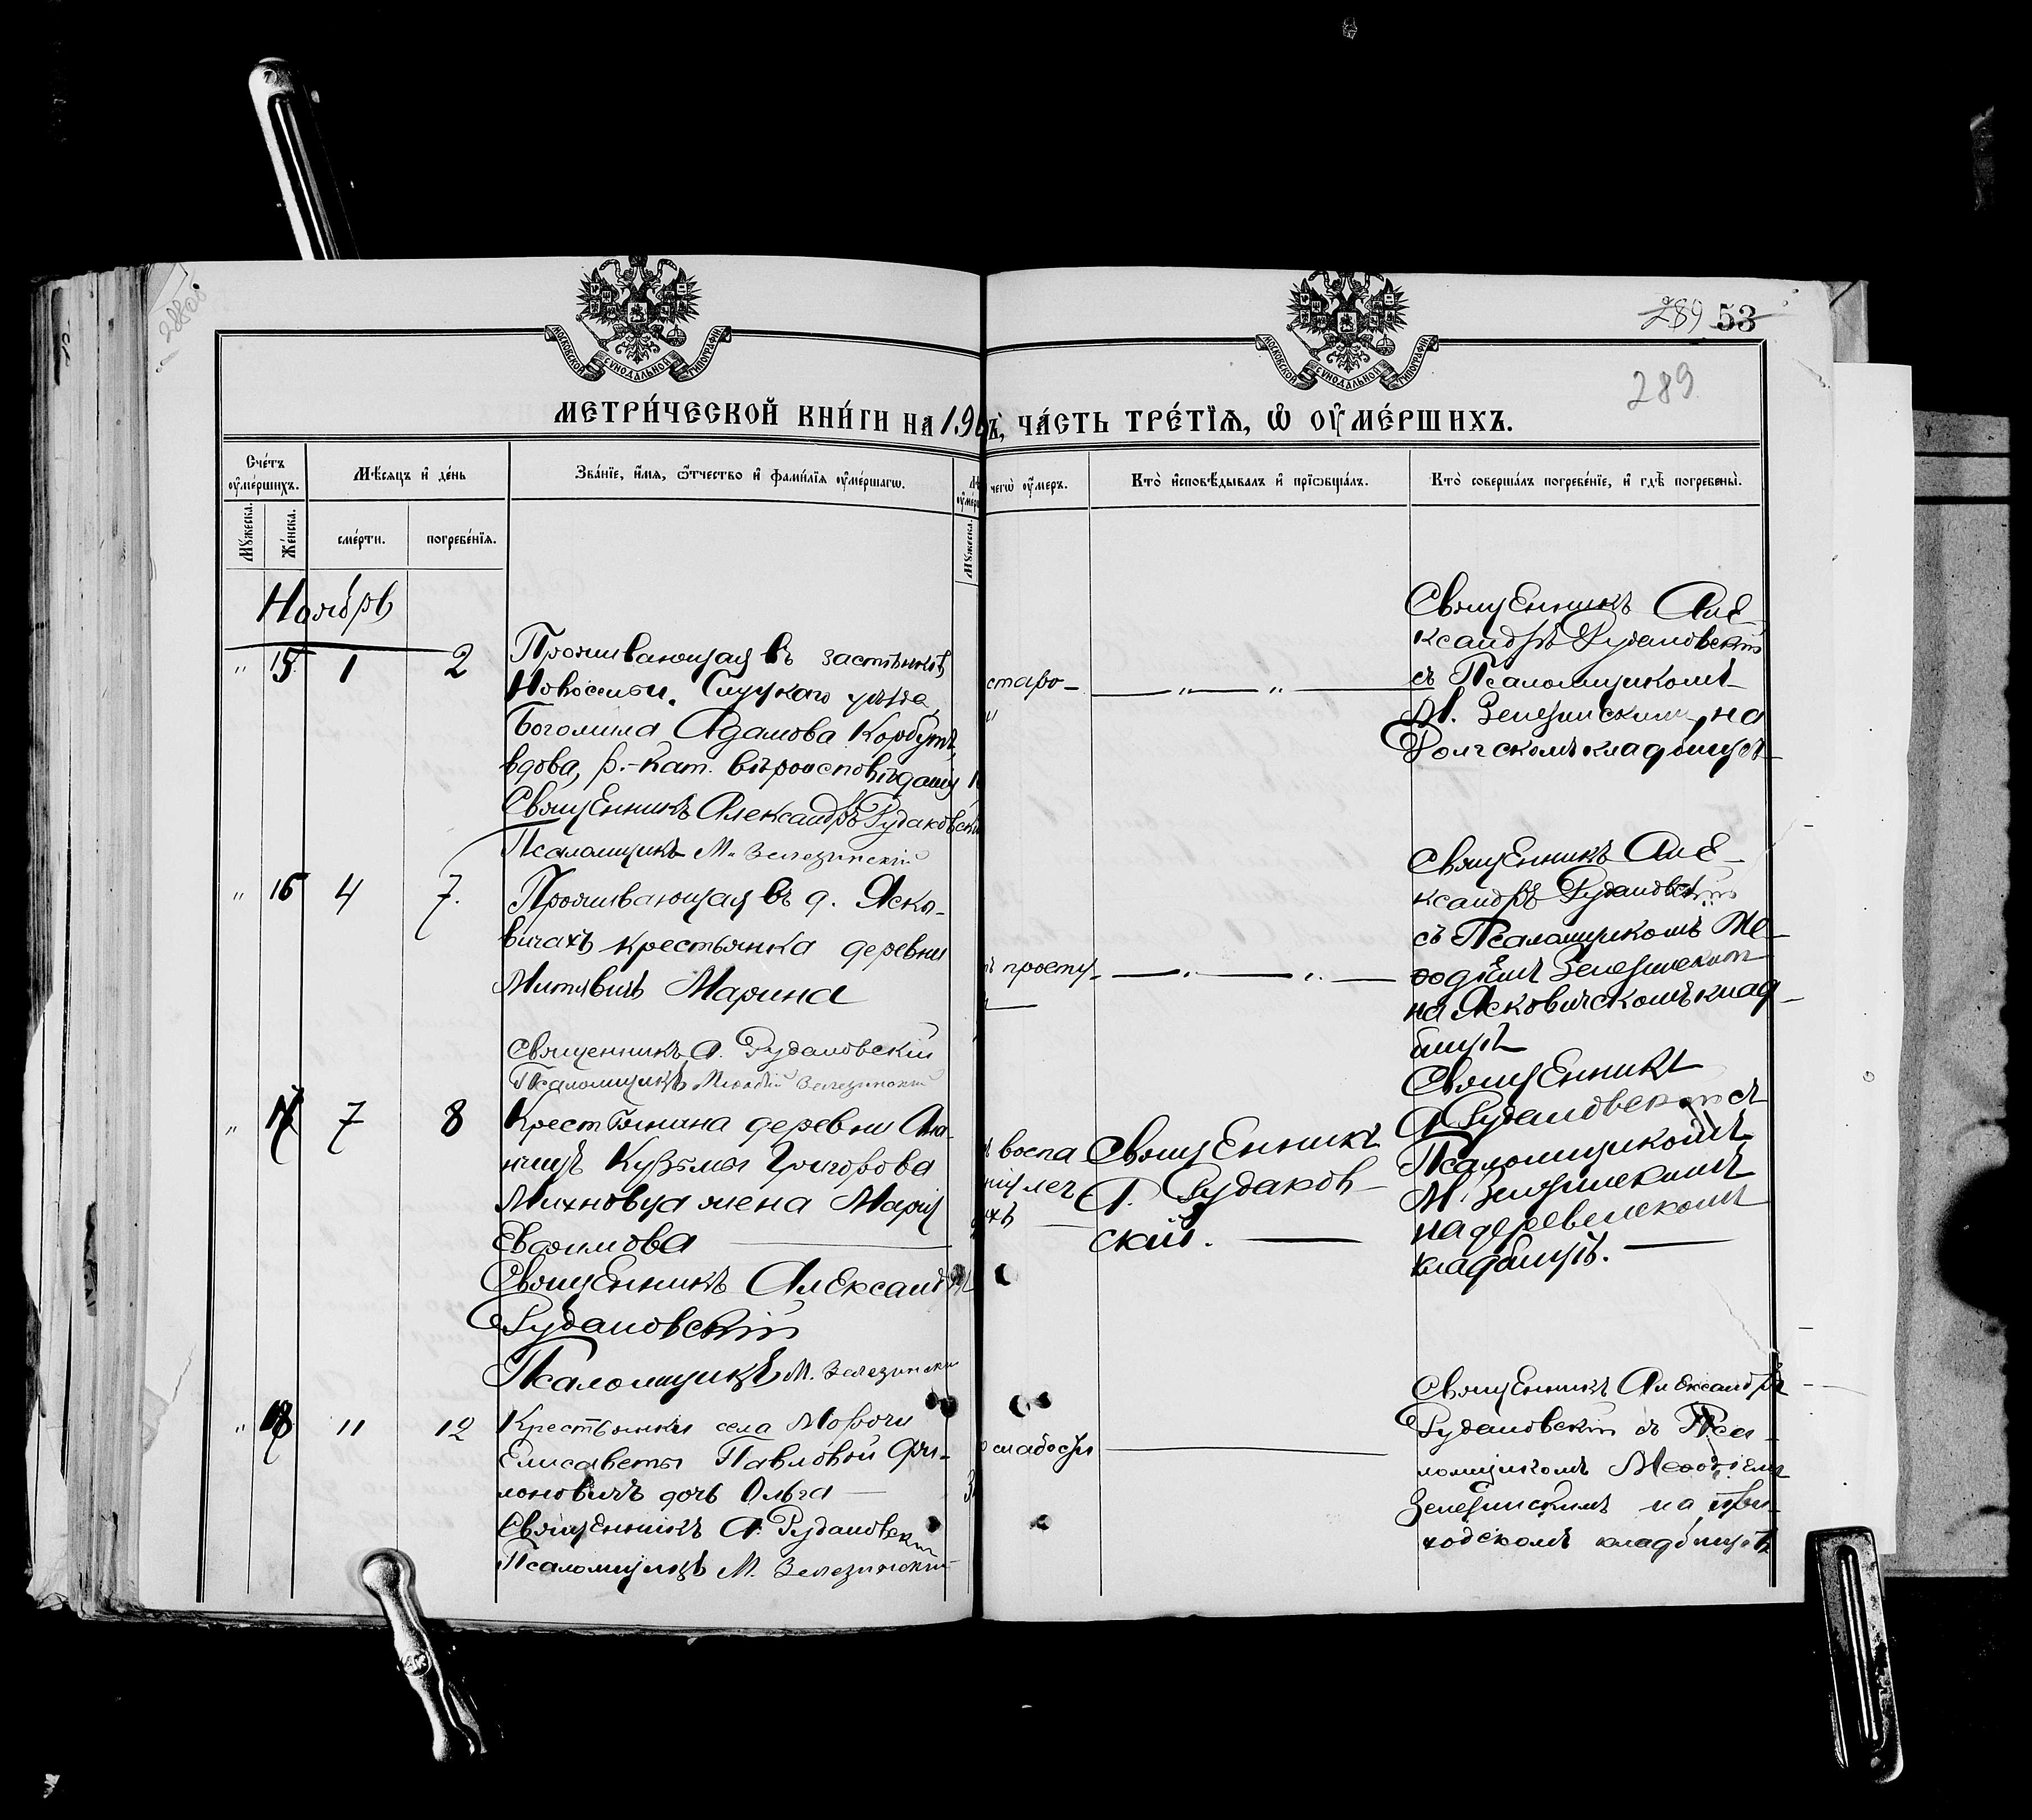 288об
МОСКОВСКОЙ СѴНОДАЛЬНОЙ ТИПОГРАФІИ
МОСКОВСКОЙ СѴНОДАЛЬНОЙ ТИПОГРАФІИ
289 53
289
МЕТРИ́ЧЕСКОЙ КНИ́ГИ НА 190 ЧА́СТЬ ТРЕ́ТІѦ, Ѡ҆ ОУ҆МЕ́РШИХЪ.
Сче́тъ оу҆ме́ршихъ.
Мѣ́сяцъ и҆ де́нь
Зва́нїе, и҆́мѧ, ѻ҆́тчество и҆ фами́лїѧ оу҆ме́ршагѡ.
чегѡ̀ оу҆́меръ.
Кто̀ и҆сповѣ́дывалъ и҆ прїѡбща́лъ.
Кто̀ соверша́лъ погребе́нїе, и҆ гдѣ̀ погребены̀.
Мꙋ́жеска.
Же́нска.
сме́рти.
погребе́нїѧ.
Мꙋ́жеска.
Ноябрь
" 15 1 2
Проживающая въ застѣнкѣ
Новоселы, Слуцкаго уѣзда,
Боголина Адамова Корбутъ,
вдова, р.-кат. вѣроисповѣданія
Священникъ Александръ Рудаковскій
Псаломщикъ М. Зелезинскій
старо-
Священникъ Але-
ксандръ Рудаковскій
съ Псаломщикомъ
М. Зелезинскимъ, на
кладбищѣ
" 16 4 7.
Проживающая въ д. Яско-
вичахъ крестьянка деревни
Митявичъ Марина
Священникъ А. Рудаковскій
Псаломщикъ Меѳодій Зелезинскій
просту-
Священникъ Але-
ксандръ Рудаковскій
съ Псаломщикомъ Ме-
ѳодіемъ Зелезинскимъ
на Ясковичскомъ клад-
бищѣ
" 17 7 8
Крестьянина деревни Ана-
ничъ Кузьмы Григорова
Михновца жена Марія
Евѳимова
Священникъ Александръ
Рудаковскій
Псаломщикъ М. Зелезинскій
воспа
лег
Священникъ
А. Рудаков-
скій.
Священникъ
А. Рудаковскій съ
Псаломщикомъ
М. Зелезинскимъ
на деревенскомъ
кладбищѣ.
" 18 11 12
Крестьянки села Морочи
Елисаветы Павловой Фи-
лоновичъ дочь Ольга
Священникъ А. Рудаковскій
Псаломщикъ М. Зелезинскій
слабости
Священникъ Александръ
Рудаковскій съ Пса-
ломщикомъ Меѳодіемъ
Зелезинскимъ на при-
ходскомъ кладбищѣ